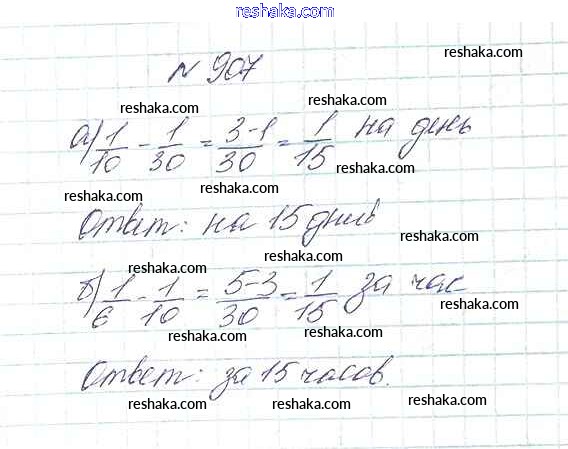 reshaka.com
reshaka.com
№ 907
reshaka.com
reshaka.com
а) 1/10 - 1/30 = 3-1/30 = 1/15 на день
reshaka.com
reshaka.com
reshaka.com
Ответ: на 15 дней
reshaka.com
reshaka.com
reshaka.com
б) 1/6 - 1/10 = 5-3/30 = 1/15 за час
reshaka.com
reshaka.com
reshaka.com
Ответ: за 15 часов.
reshaka.com
reshaka.com
reshaka.com